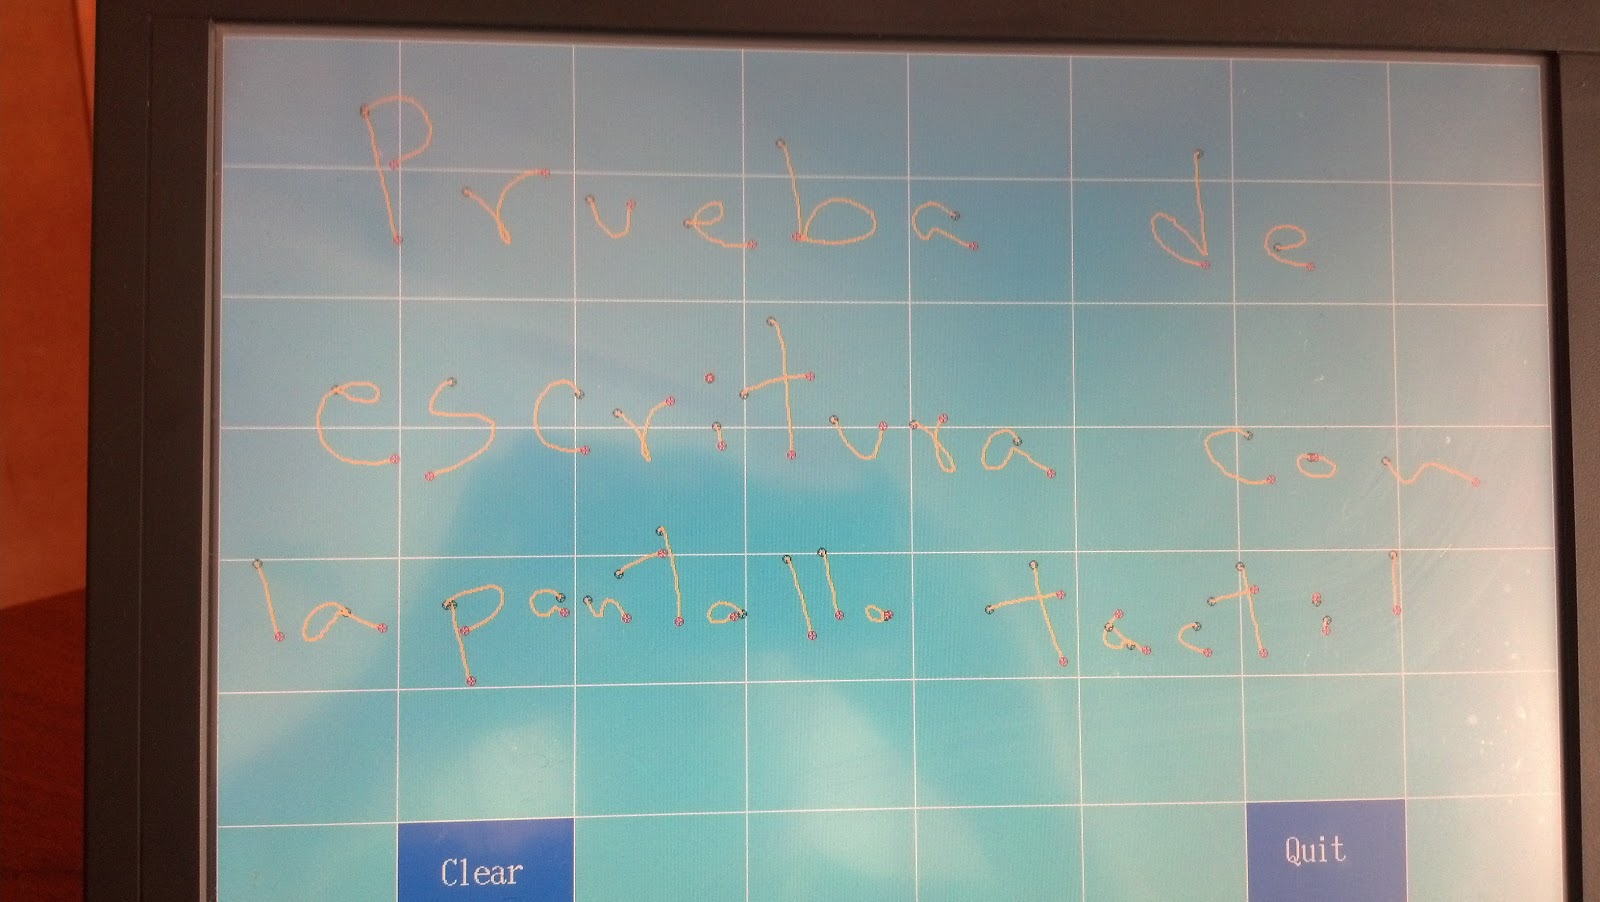 Prueba de
escritura con
la pantalla tactil
Clear
Quit